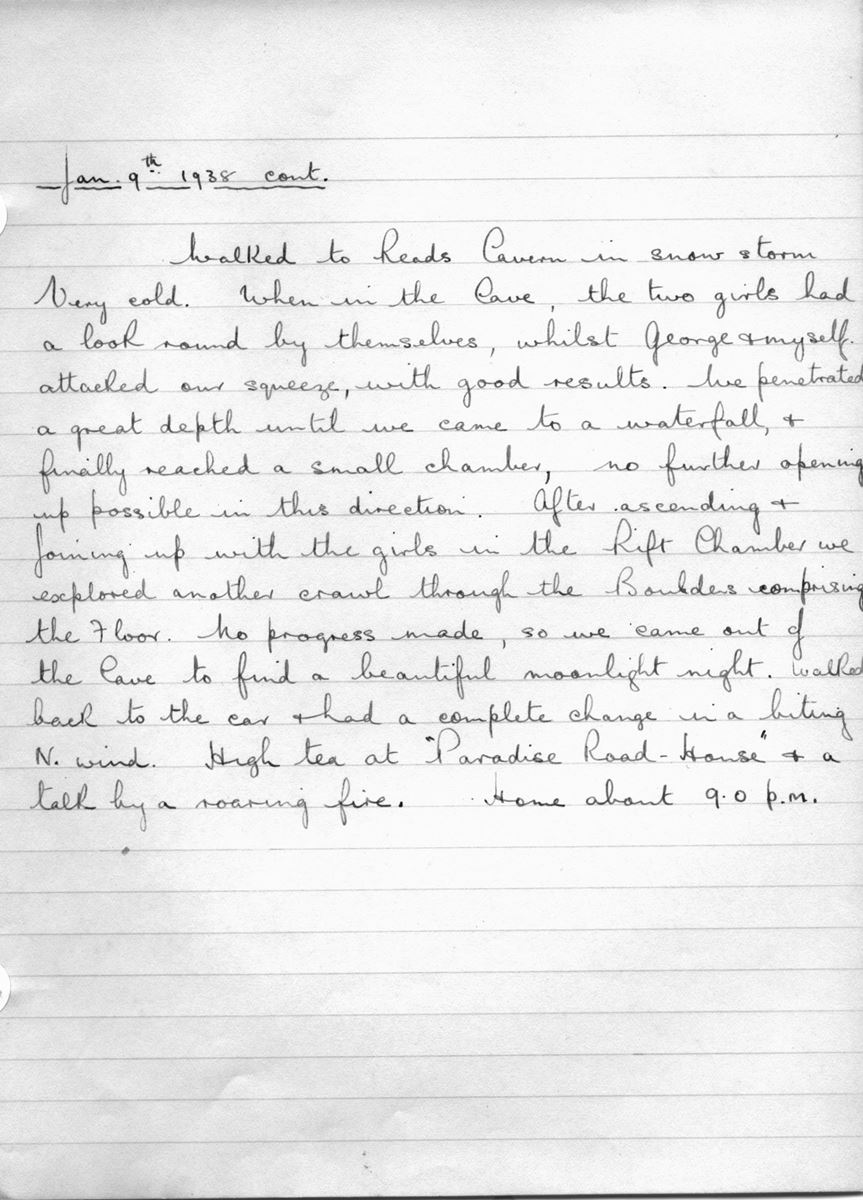 Jan. 9th 1938 cont.
Walked to Reads Cavern in snow storm
Very cold. When in the Cave, the two girls had
a look round by themselves, whilst George & myself.
attacked our squeeze, with good results. We penetrated
a great depth until we came to a waterfall, &
finally reached a small chamber, no further opening
up possible in this direction. After ascending &
joining up with the girls in the Rift Chamber we
explored another crawl through the Boulders comprising
the Floor. No progress made, so we came out of
the Cave to find a beautiful moonlight night. Walked
back to the car & had a complete change in a biting
N. wind. High tea at "Paradise Road-House" & a
talk by a roaring fire. Home about 9.0 p.m.